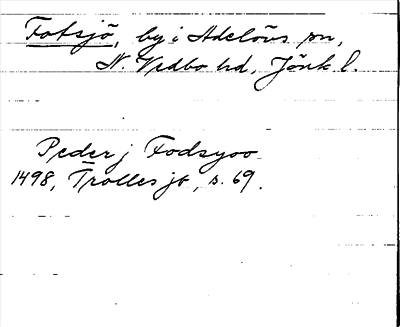 Fotsjö, by i Adelövs sn,
N. Vedbo hd, Jönk l.
Peder j Fodsyoo
1498, Trolles jb, s. 69.